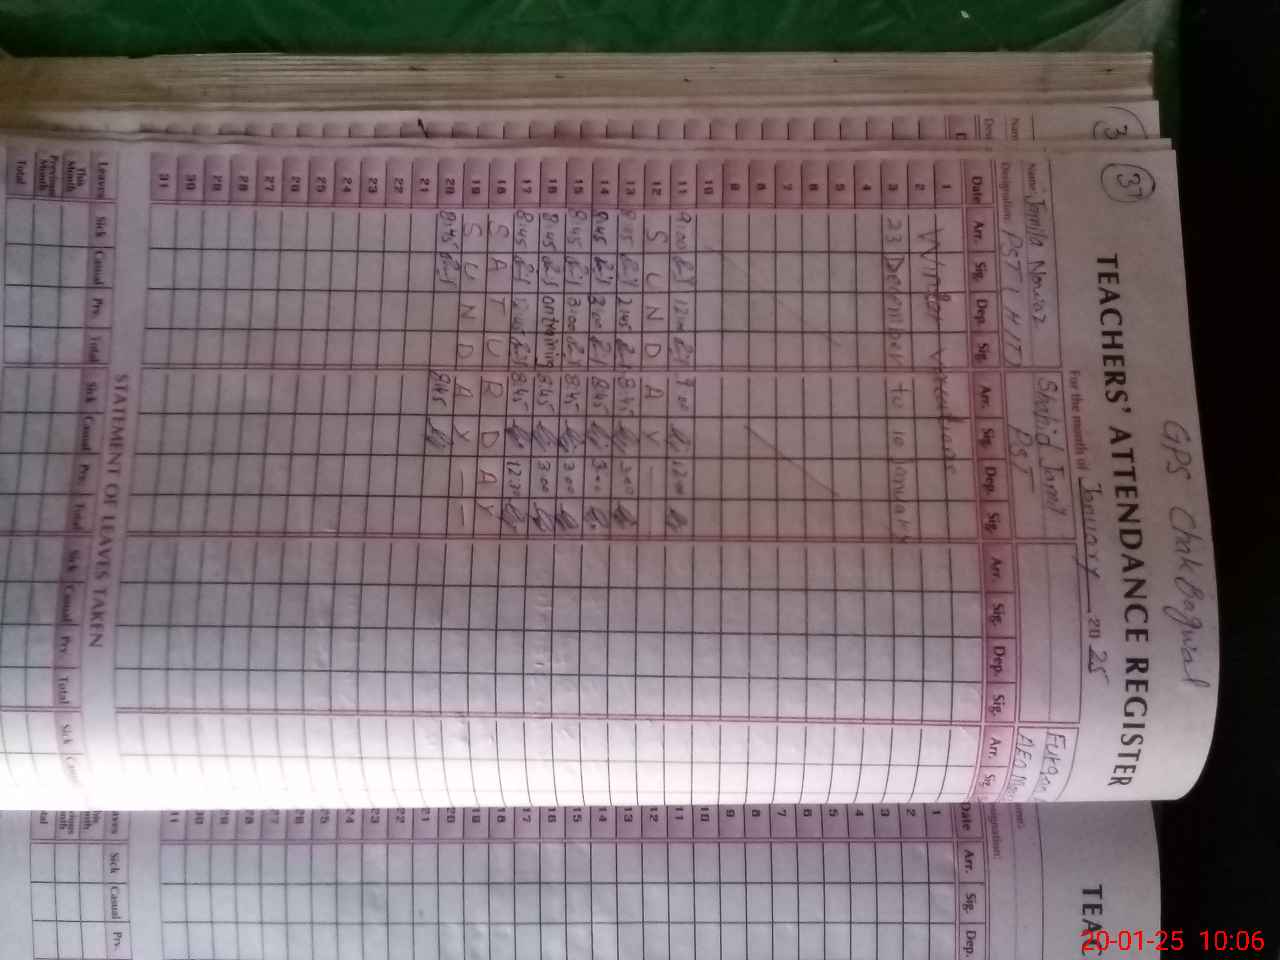 GPS Chak Bagwal
37
TEACHERS' ATTENDANCE REGISTER
For the month of January 2025
Name: Jamila Nawaz Shahid Jamil Furqan
Designation: PST (HT) PST AEO
Date Arr. Sig. Dep. Sig. Arr. Sig. Dep. Sig. Arr. Sig. Dep. Sig. Arr. Sig.
1
2 Winter vacations
3 23 December to 10 January
4
5
6
7
8
9
10
11 9:00 12:00 9:00 12:00
12 S U N D A Y
13 8:45 2:45 8:45 3:00
14 8:45 3:00 8:45 3:00
15 8:45 3:00 8:45 3:00
16 8:45 on training 8:45 3:00
17 8:45 12:45 8:45 12:30
18 S A T U R D A Y
19 S U N D A Y
20 8:45 8:45
21
22
23
24
25
26
27
28
29
30
31
STATEMENT OF LEAVES TAKEN
Leaves Sick Casual Prv. Total Sick Casual Prv. Total Sick Casual Prv. Total Sick
This Month
Previous Month
Total
3
TEAC
Date Arr. Sig. Dep.
1
2
3
4
5
6
7
8
9
10
11
12
13
14
15
16
17
18
19
20
21
22
23
24
25
26
27
28
29
30
31
Sick Casual Prv.
20-01-25 10:06